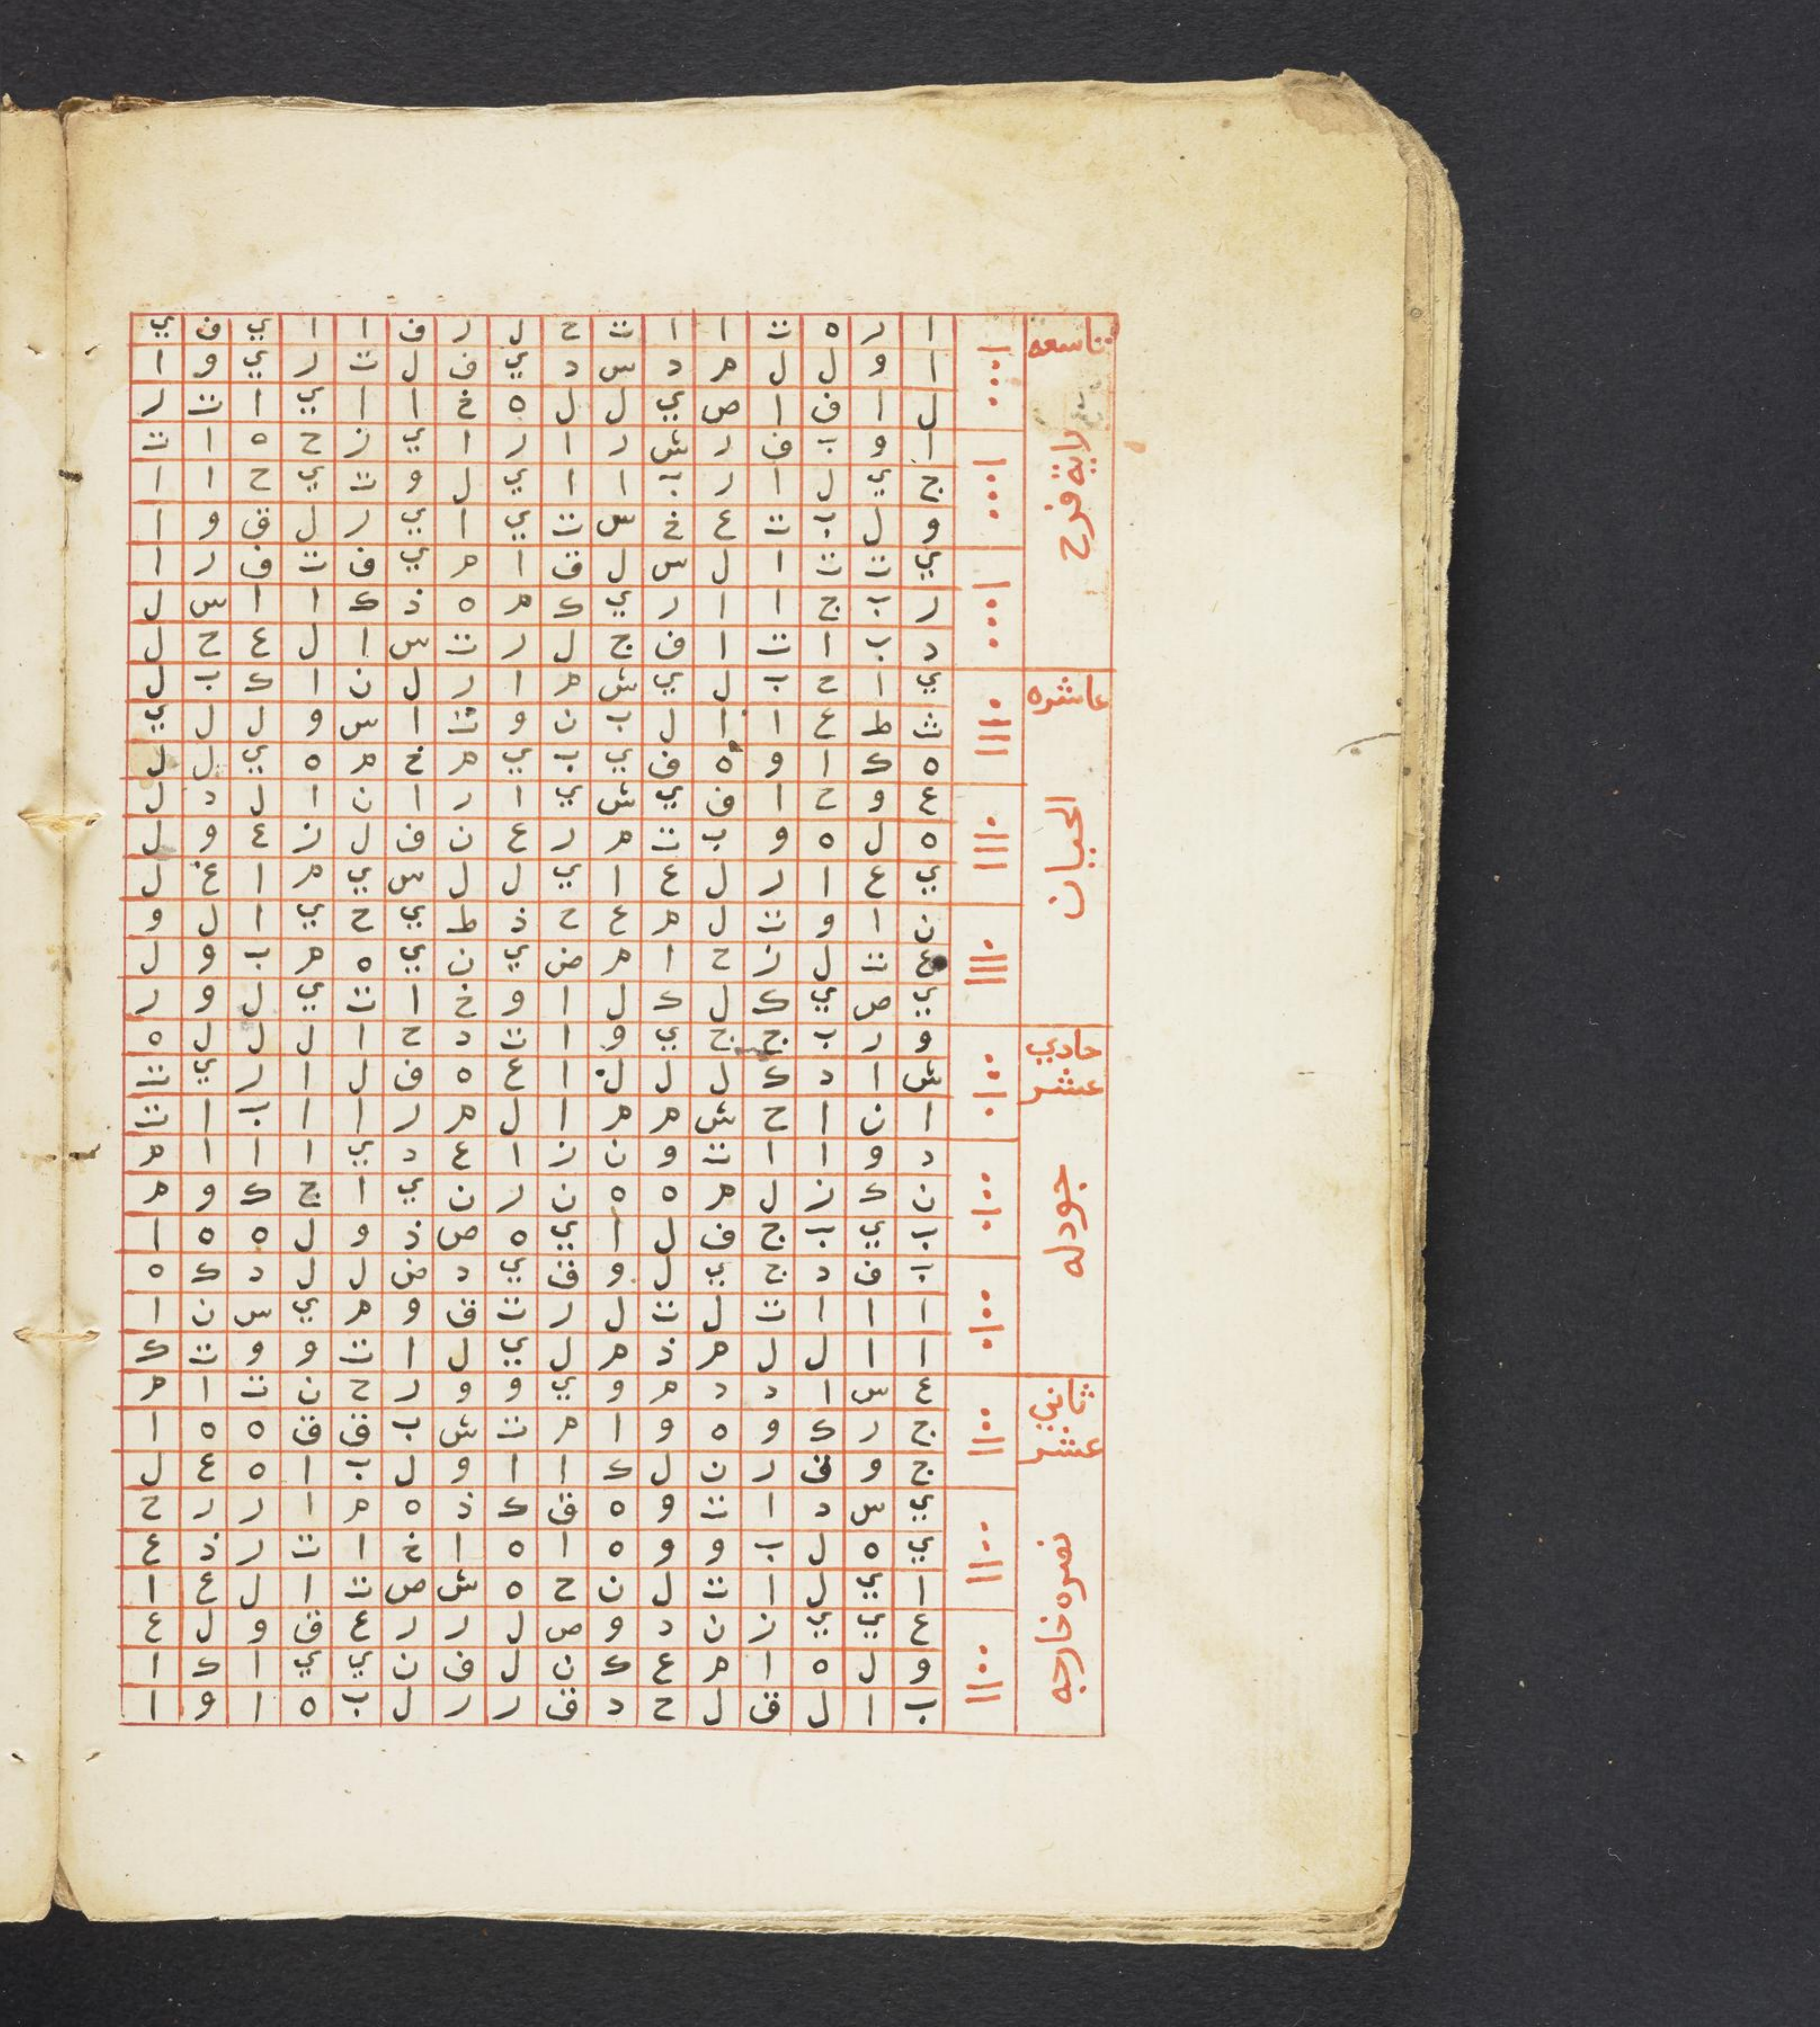 تاسعه
راية فرح
ا ر ه ت ا ا ت ح ل ر ف ا ا ي ف ي
ا و ل ل م د س د ي ف ل ت ر ي و ا
ل ا ف ا ص ي ل ل ه خ ا ا ي ا ت ر
ا و ب ف ر ش ر ا ر ا ي ز ح ه ا ت
ج ي ل ا ر ب ا ا ي ل و ت ي ح ا ا
و ل ب ت ع خ س ت ي ا ي ر ل ق و ا
ي ت ت ا ل س ل ق ا م ي ف ت ف ر ا
ر ب ج ا ا ر ي ك م ه ذ ك ا ا س ل
د ب ا ت ا ف ج ل ر ت س ا ل ع ح ل
عاشره
الحيان
ي ا ح ب ل ي ش م ا ر ل ن ا ك ب ل
ث ط ع ا ا ل ب ن و ت ا س و ل ل ي
ه ك ا و ه ف ي ب ي م خ م ه ي ل ل
ع و ح ا ف ي ش ي ا ر ا ن ا ل د ل
ه ل ه و ب ت م ر ع ن ف ل ز ع و ل
ي ع ا ر ل ع ا ي ل ل س ي م ا غ ل
ن ا و ت ل م ع ح ذ ط ي ح ي ا ل و
ع ت ل ز ح ا م ض ي ن ي ه م ب و ل
ي ص ي ك ل ك ل ا و خ ا ت ي ل و ر
حادي
عشر
جودله
و ر ب ج ج ي و ا ت د ح ا ل ل ل ه
ش ا د ك ل ل ل ا ع ه ف ل ا ر ي ت
ا ن ا ح ش م م ا ل م ر ا ا ب ا ت
د و ا ا ت و ن ز ا ع د ي ا ا ا م
ن ك ز ل م ه ه ن ر ن ي ا ج ك و م
ب ي ب ج ف ل ا ي ه ص ذ و ل ه ه ا
ب ف د ج ي ل و ق ي د ض ل ل د ك ه
ا ا ا ت ل ت ل ر ت ق و م ي س ن ا
ا ا ل ل م ذ م ل ي ل ا ت و و ت ك
ثاني
عشر
نصره خارجه
ع س ا د د م و ي و و ر ح ن ت ا م
ج ر ك و ه و ا م ت ش ب ق ق ه ه ا
ج و ف ر ن ل ك ا ا و ل ب ا ه ع ل
ي س د ا ت و ه ق ك ذ ه م ا ر ر ح
ي ه ل ب و و ه ا ه ا خ ا ت ر ذ ع
ا ي ل ا ت ل ن ح ه ش ص ت ا ل ع ا
ع ي ي ز ن د و ص ل ر ر ع ق و ل ع
و ل ه ا م ع ك ن ل ف ن ي ي ا ك ا
ب ا ل ق ل ح د ق ر ر ل ب ه ا و ا